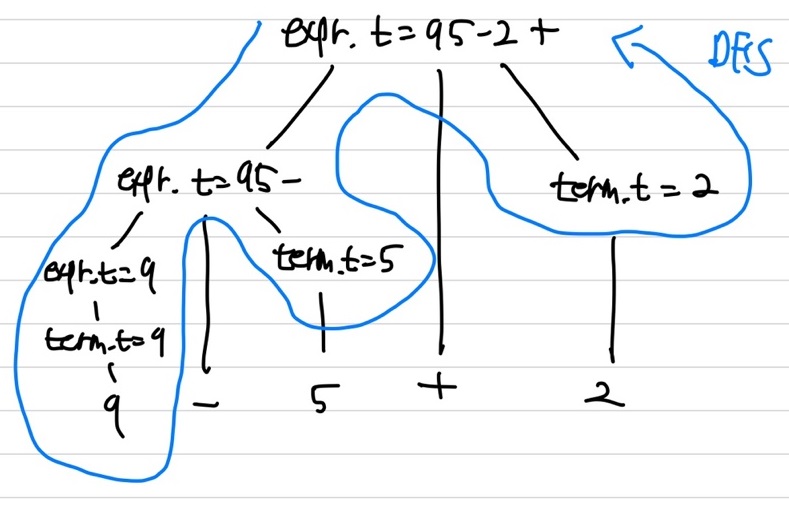 expr. t = 95-2+
DFS
expr. t = 95-
term.t = 2
expr.t=9
term.t=5
term.t=9
9 - 5 + 2